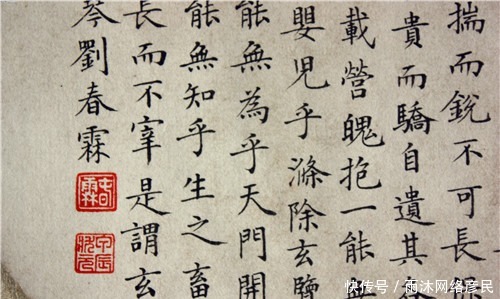 揣而銳不可長保
貴而驕自遺其
載營魄抱一能無
嬰兒乎滌除玄覽
能無為乎天門開
能無知乎生之畜
長而不宰是謂玄
琴劉春霖
春霖
甲辰狀元
快传号 / 雨沐网络彦民